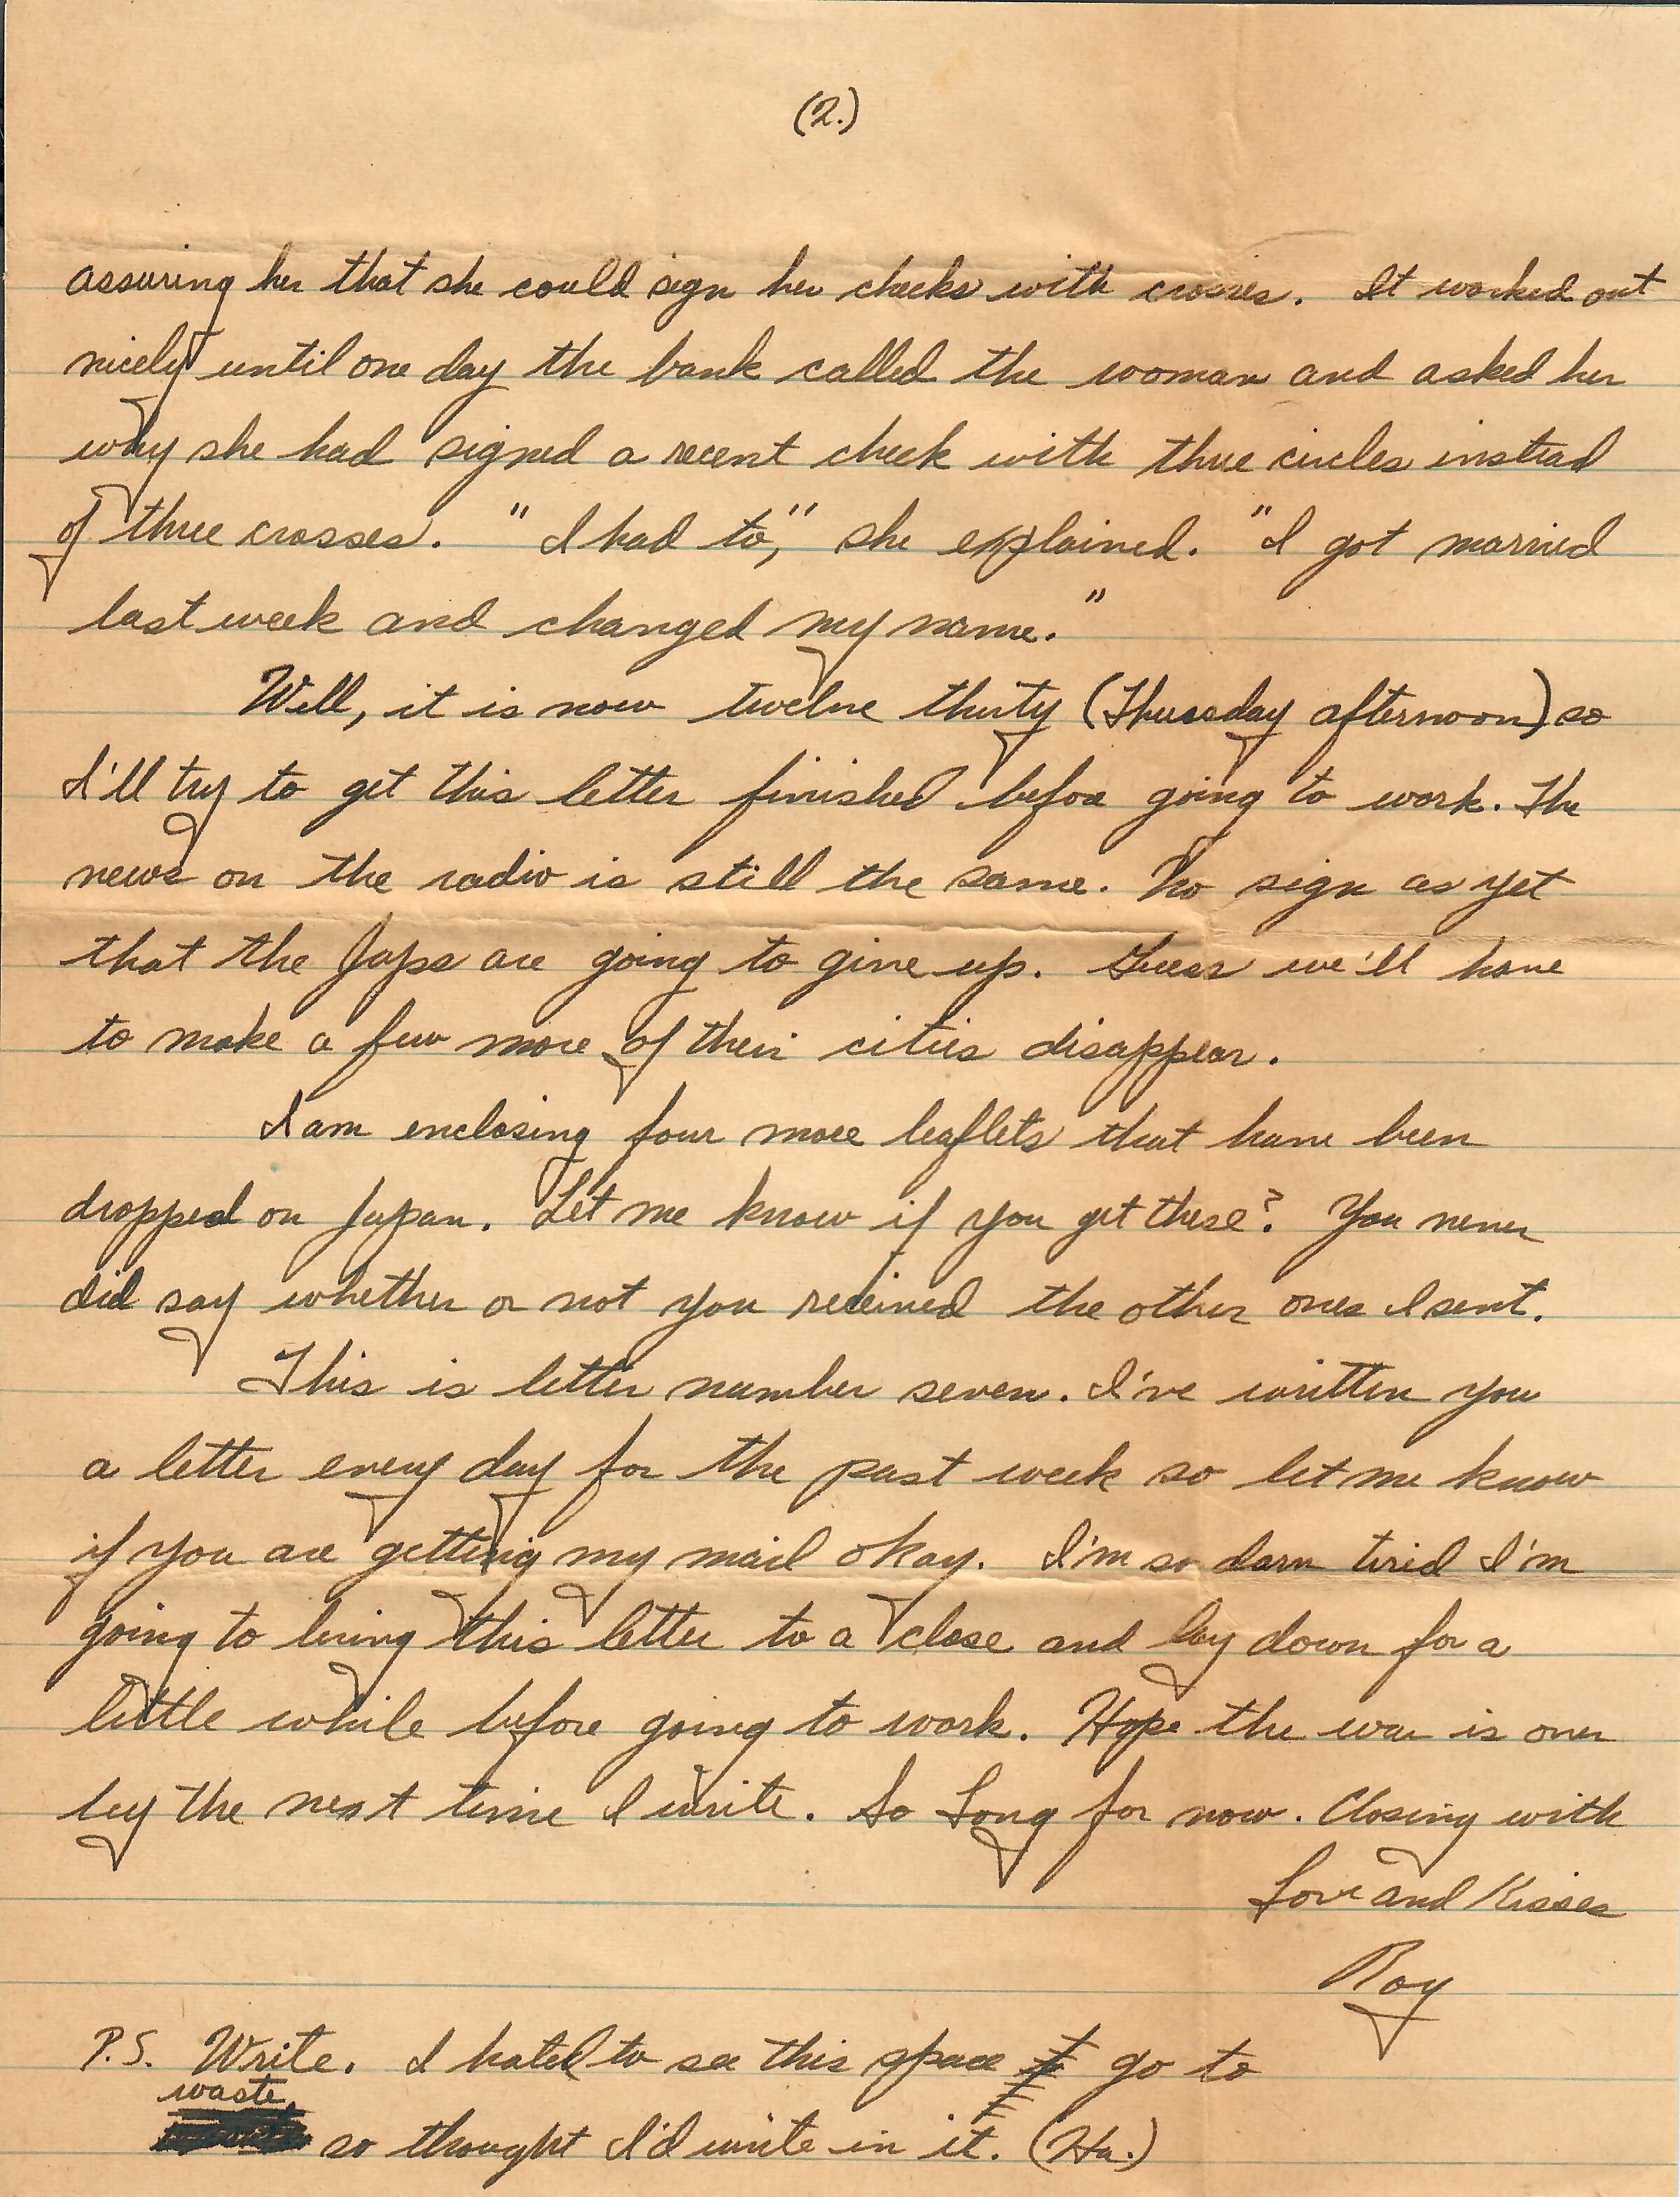 (2.)
assuring her that she could sign her checks with crosses. It worked out
nicely until one day the bank called the woman and asked her
why she had signed a recent check with three circles instead
of three crosses. "I had to," she explained. "I got married
last week and changed my name."
Well, it is now twelve thirty (Thursday afternoon) so
I'll try to get this letter finished before going to work. The
news on the radio is still the same. No sign as yet
that the Japs are going to give up. Guess we'll have
to make a few more of their cities disappear.
I am enclosing four more leaflets that have been
dropped on Japan. Let me know if you get these? You never
did say whether or not you received the other ones I sent.
This is letter number seven. I've written you
a letter every day for the past week so let me know
if you are getting my mail okay. I'm so darn tired I'm
going to bring this letter to a close and lay down for a
little while before going to work. Hope the war is over
by the next time I write. So Long for now. Closing with
Love and Kisses
Roy
P.S. Write. I hated to see this space go to
waste,
so thought I'd write in it. (Ha.)